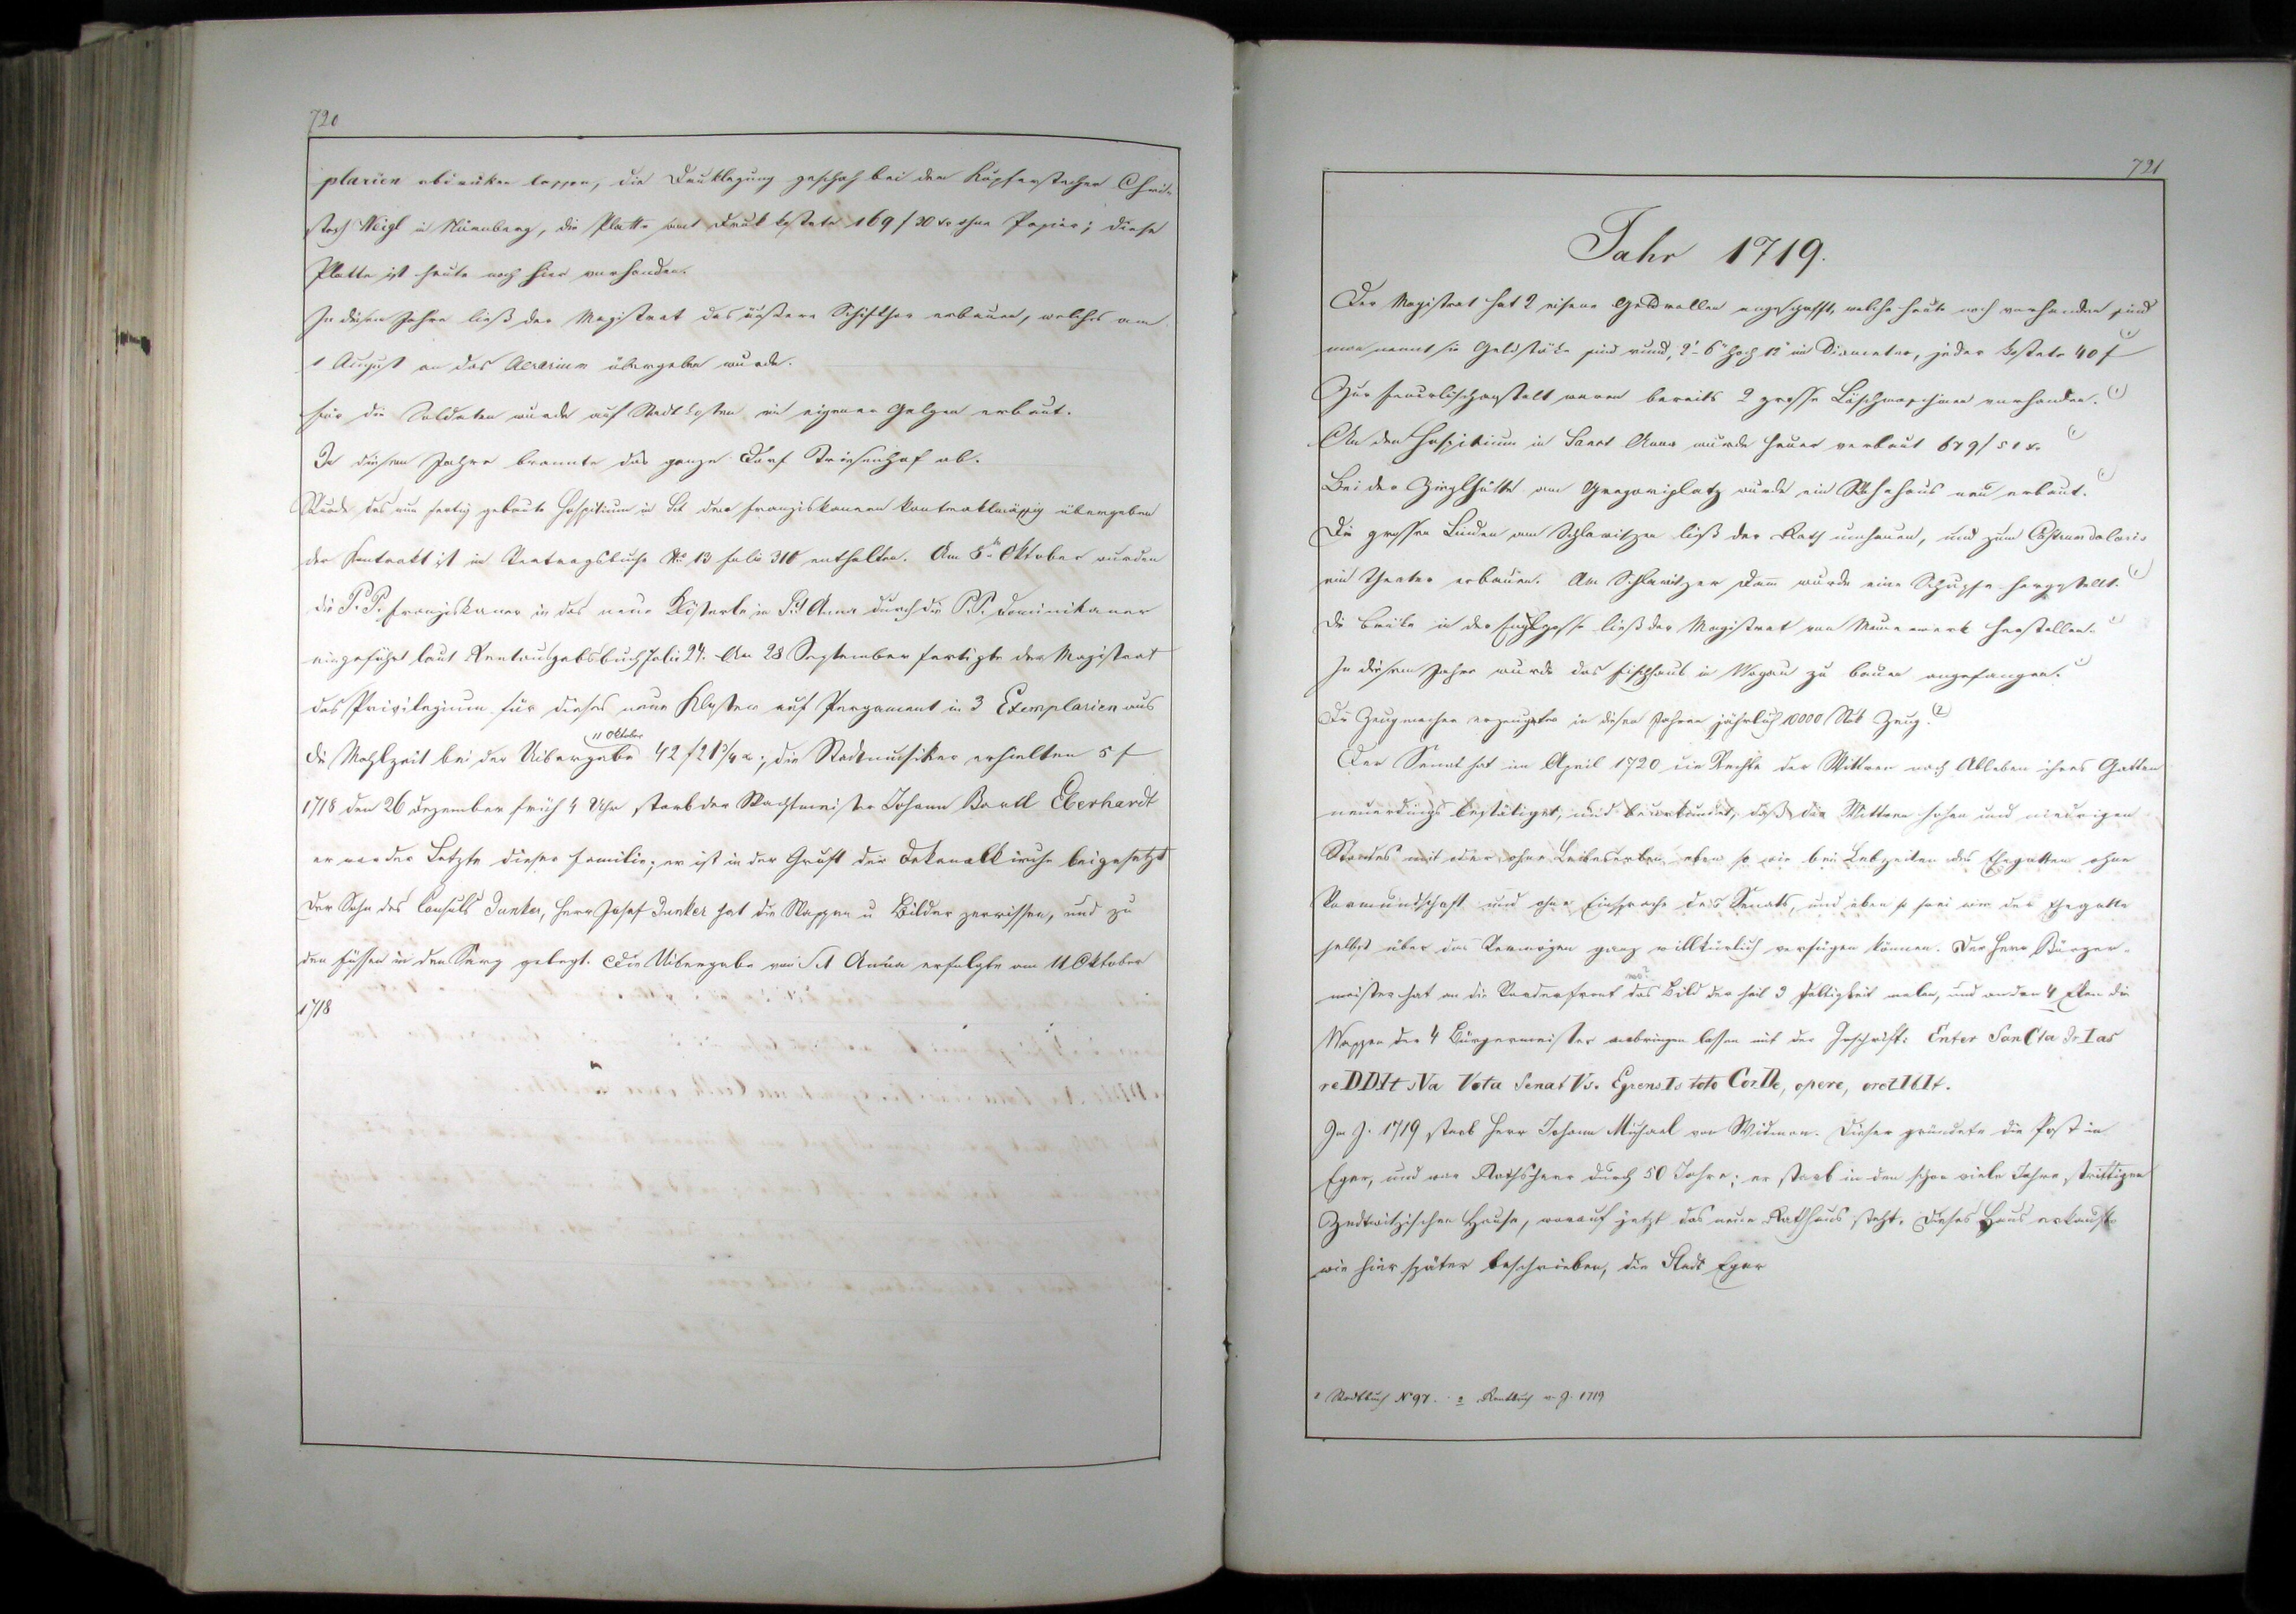 720
plarien abdruken lassen, die Drucklegung geschah bei dem Kupferstecher Chri-
stoph Weigl in Nürnberg, die Platte samt Druck kostete 169 f 30 xr ohne Papier; diese
Platte ist heute noch hier vorhanden.
In diesem Jahre ließ der Magistrat das äußere Schiftthor erbauen, welches am
1 August an das Aerarium übergeben wurde.
für die Soldaten wurde auf Stadtkosten ein eigener Galgen erbaut.
In diesem Jahre brannte das ganze Dorf Triesenhof ab.
Wurde das nun fertig gebaute Hospitium in St. den Franziskanern kontraktmässig übergeben
der Kontrakt ist im Vertragsbuche No 13 folio 310 enthalten. Am 5ten Oktober wurden
die P.P. Franziskaner in das neue Klösterle in Sct Anna durch die P.P. Dominikaner
eingeführt laut Rentausgabsbuch folio 27. Am 28 September fertigte der Magistrat
das Privilegium für dieses neue Kloster auf Pergament in 3 Exemplarien aus
11 Oktober
die Mahlzeit bei der Uibergabe 42 f 21 3/4 xr; die Stadtmusiker erhielten 5 f
1718 den 26 Dezember früh 4 Uhr starb der Wachtmeister Johann Bartl Eberhardt
er war der Letzte dieser Familie; er ist in der Gruft der Dekanalkirche beigesetzt
Der Sohn des Consuls Junker, Herr Josef Junker hat die Wappen u Bilder zerrissen, und zu
den Füssen in den Sarg gelegt. Die Uibergabe von St Anna erfolgte am 11 Oktober
1718
721
Jahr 1719.
Der Magistrat hat 2 eiserne Geldrollen angeschafft, welche heute noch vorhanden sind
man nennt sie Geldstöcke sind rund, 2'-6" hoch 12" im Diameter, jeder kostete 40 f (1)
Zur Feuerlöschanstalt waren bereits 2 grosse Löschmaschinen vorhanden. (1)
An dem Hospitium in Sanct Anna wurde heuer verbaut 679 f 51 xr (1)
Bei der Zieglhütte am Gregoriplatz wurde ein Wohnhaus neu erbaut. (1)
Die grossen Linden am Schlawitzer ließ der Rath umhauen, und zum
ein Theater erbauen. Am Schlawitzer Dam wurde eine Schupfe hergestellt. (1)
Die Brüke in der ließ der Magistrat von Mauerwerk herstellen. (1)
In diesem Jahre wurde das Fischhaus in Wogau zu bauen angefangen. (1)
Die Zeugmacher erzeugten in diesen Jahren jährlich 10000 Stük Zeug. (2)
Der Senat hat im April 1720 die Rechte der Wittwen nach Ableben ihres Gatten
neuerdings bestätiget, und beurkundet, daß die Wittwen hohen und niedrigen
Standes mit oder ohne Leibeserben, eben so wie bei Lebzeiten des Ehegatten ohne
Vormundschaft und ohne Einsprache des Senats, und eben so frei wie der Ehegatte
selbst über das Vermögen ganz willkürlich verfügen können. Der Herr Bürger-
meister hat an die Vorderfront das Bild der heil 3 faltigkeit malen, und an den 4 Eken die
wo?
Wappen der 4 Bürgermeister anbringen lassen mit der Inschrift: Enter SanCta TrIas
reDDIt sVa Vota SenatVs. EgrensIs toto CorDe, opere, oretIbIt.
Im J. 1719 starb Herr Johann Michael von Widman. Dieser gründete die Post in
Eger, und war Rathsherr durch 50 Jahre; er starb in dem schon viele Jahre strittigen
Zedtwitzischen Hause, worauf jetzt das neue Rathhaus steht. Dieses Haus erkaufte
wie hier später beschrieben, die Stadt Eger
1 Stadtbuch N 97. 2 Rentbuch v. J. 1719